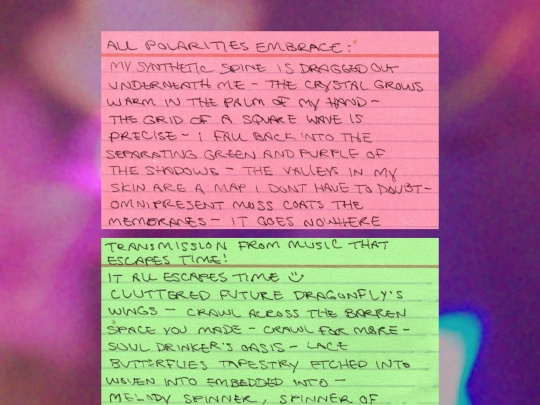 ALL POLARITIES EMBRACE:
MY SYNTHETIC SPINE IS DRAGGED OUT
UNDERNEATH ME - THE CRYSTAL GROWS
WARM IN THE PALM OF MY HAND -
THE GRID OF A SQUARE WAVE IS
PRECISE - I FALL BACK INTO THE
SEPARATING GREEN AND PURPLE OF
THE SHADOWS - THE VALLEYS IN MY
SKIN ARE A MAP I DONT HAVE TO DOUBT -
OMNIPRESENT MOSS COATS THE
MEMBRANES - IT GOES NOWHERE
TRANSMISSION FROM MUSIC THAT
ESCAPES TIME!
IT ALL ESCAPES TIME ☺
CLUTTERED FUTURE DRAGONFLY'S
WINGS - CRAWL ACROSS THE BARREN
SPACE YOU MADE - CRAWL FOR MORE -
SOUL DRINKER'S OASIS - LACE
BUTTERFLIES TAPESTRY ETCHED INTO
WOVEN INTO EMBEDDED INTO -
MELODY SPINNER, SPINNER OF